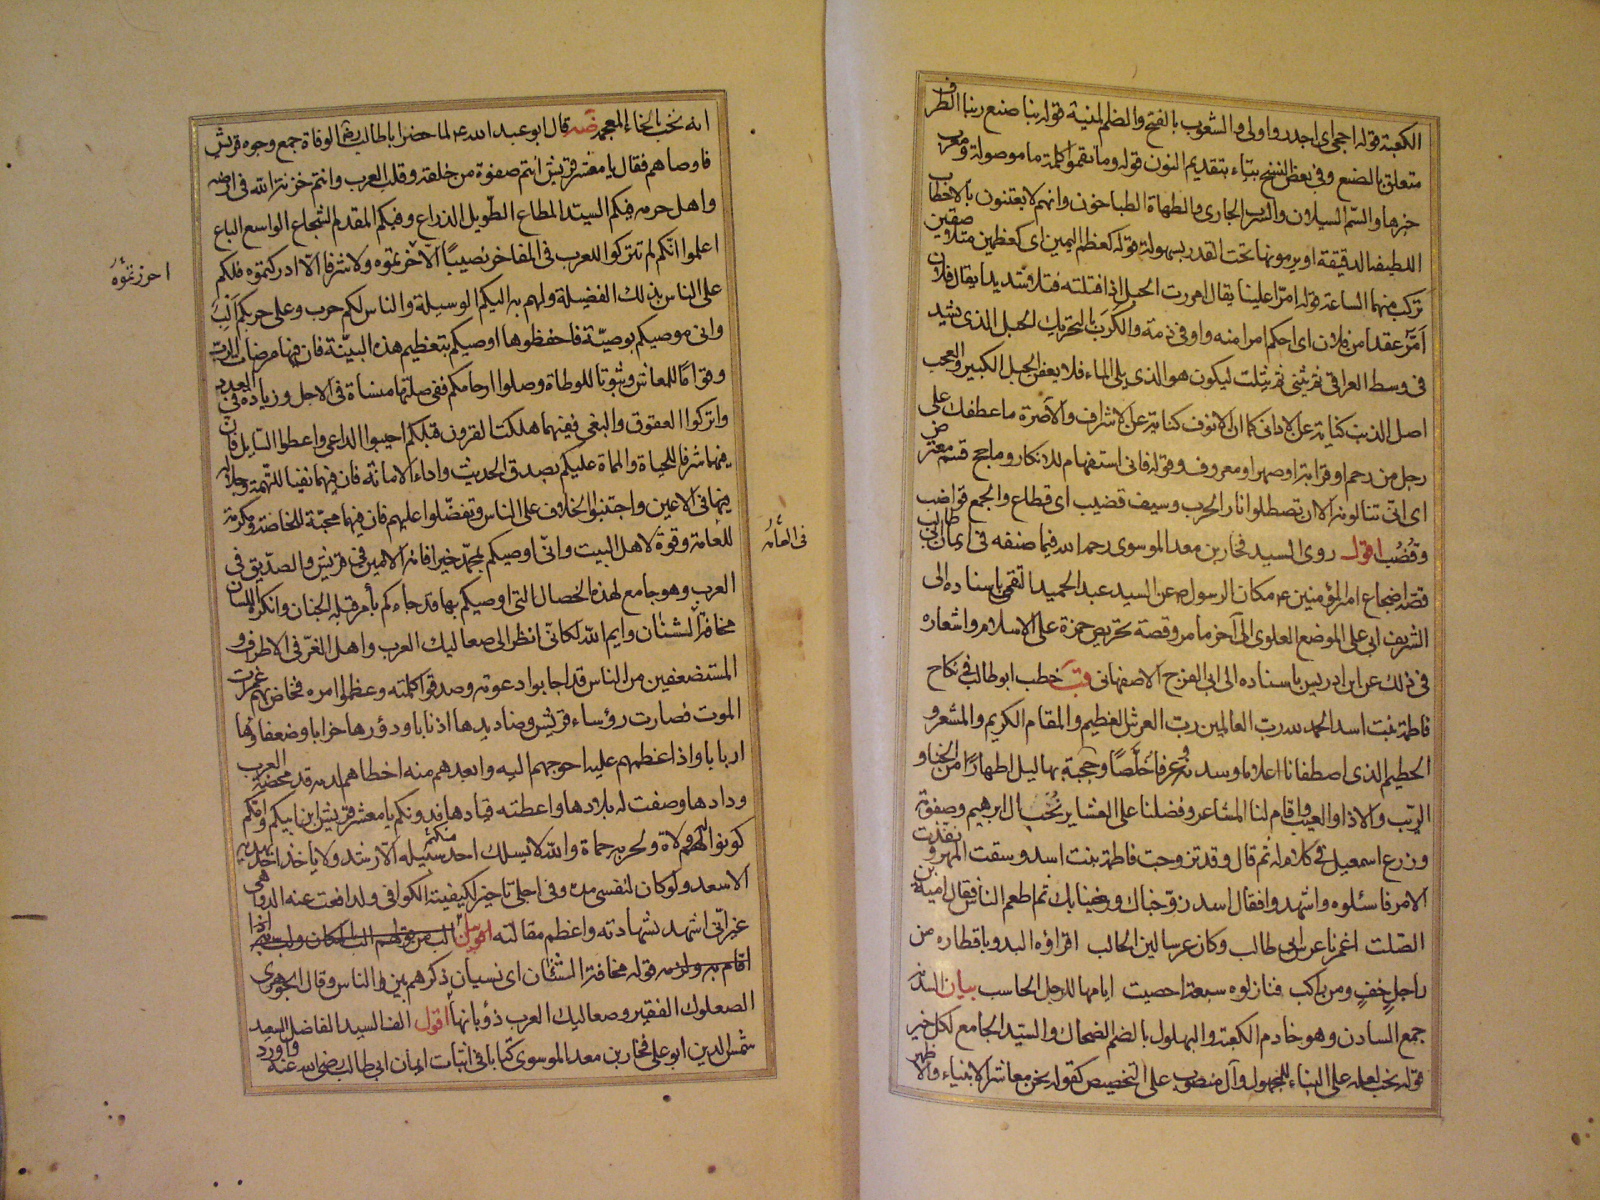 الكعبة قوله اجحى اى اجدر واولى والشعوب بالفتح والضم المنية قوله ربنا صنع ربنا الظرف
متعلق بالصنع وفى بعض النسخ بتاء بتقديم النون قوله وما نقموا كلمة ما موصولة ومعرب
خبرها والسّم السيلان والسرب الجارى والطهاة الطباخون وانهم لا يعتنون بالاخطاب
اللطيفة الدقيقة او يرمونها تحت القدر بسهولة قوله كعظم اليمين اى كعظمين متلاصقين
تركب منهما الساعد قوله امرّا علينا يقال امررت الحبل اذا فتلته فتلا شديدا يقال فلان
امرّ عقدا من فلان اى احكم امرا منه واوفى ذمة والكرب بالتحريك الحبل الذى يشد
فى وسط العراقى ثم يثنى ثم يثلث ليكون هو الذى يلى الماء فلا يعفن الحبل الكبير والعجب
اصل الذنب كناية عن الادانى كما ان الانوف كناية عن الاشراف والآصرة ما عطفك على
رجل من رحم او قرابة او صهر او معروف وقوله فانى استفهام للانكار وما بحج قسم معترض
اى انّى تنالونه الا ان تصطلوا نار الحرب وسيف قضيب اى قطاع والجمع قواضب
وقُضُب اقول روى السيد فخار بن معد الموسوى رحمه الله فيما صنفه فى ايمان ابى طالب
قصّة اضجاع امير المؤمنين ع مكان الرسول ص عن السيد عبد الحميد التقى باسناده الى
الشريف ابى على الموضح العلوى الى آخر ما مر وقصة تحريص حمزة على الاسلام واشعاره
فى ذلك عن ابن ادريس باسناده الى ابى الفرج الاصفهانى قب خطب ابو طالب فى نكاح
فاطمة بنت اسد الحمد لله رب العالمين رب العرش العظيم والمقام الكريم والمشعر و
الحطيم الذى اصطفانا اعلاما وسدنة وعرفا خُلّصًا وحجبة بهاليل اطهارًا من الخنا و
الريب والاذا والعيب واقام لنا المشاعر وفضلنا على العشاير نُخب ال ابرهيم وصفوته
وزرع اسمعيل فى كلام له ثم قال وقد تزوجت فاطمة بنت اسد وسقت المهر ونفذت
الامر فاسئلوه واشهدوا فقال اسد زوّجناك ورضينا بك ثم اطعم الناس فقال امية بن
الصّلت اغمرنا عرس ابى طالب وكان عرسا لين الحالب اقراؤه البدو باقطاره من
راجل خفٍ ومن راكب فنازلوه سبعة احصيت ايامها للرجل الحاسب بيان السدنة
جمع السادن وهو خادم الكعبة والبهلول بالضم الضحاك والسيّد الجامع لكل خير
قوله نخب لعله على البناء للمجهول وآل منصوب على التخصيص كقوله نحن معاشر الانبياء والاظهر
انه نخب بالخاء المعجمة ضه قال ابو عبد الله ع لما حضر ابا طالب رض الوفاة جمع وجوه قريش
فاوصاهم فقال يا معشر قريش انتم صفوة من خلقه وقلب العرب وانتم خزنة الله فى ارضه
واهل حرمه فيكم السيّد المطاع الطّويل الذراع وفيكم المقدم الشجاع الواسع الباع
اعلموا انّكم لم تتركوا للعرب فى المفاخر نصيبًا الّا حزتموه ولا شرفا الّا ادركتموه فلكم
احرزتموُهُ
على الناس بذلك الفضيلة ولهم به اليكم الوسيلة والناس لكم حرب وعلى حربكم اَلبٌ
وانى موصيكم بوصيّة فاحفظوها اوصيكم بتعظيم هذه البيّنة فان فيها مرضات الرب
وقوامًا للمعاش وثبوتا للوطاة وصلوا ارحامكم ففى صلتها منساة فى الاجل وزيادة فى العدد
واتركوا العقوق والبغى ففيهما هلكت القرون قبلكم اجيبوا الداعى واعطوا السّايل فانّ
فيهما شرفا للحياة والمماة عليكم بصدق الحديث واداء الامانة فان فيهما نفيا للتّهمة وجلالة
فى الاعين واجتنبوا الخلاف على الناس وتفضّلوا عليهم فان فيهما محبّة للخاصّة ومكرمة
للعامة وقوة لاهل البيت وانّى اوصيكم بمحمّد خيرا فانه الامين فى قريش والصدّيق فى
فى العامّة
العرب وهو جامع لهذه الخصال التى اوصيكم بها قد جاءكم بأمر قبله الجنان وانكره اللسان
مخافة الشنئان وايم الله لكانّى انظر الى صعاليك العرب واهل الغرّ فى الاطراف و
المستضعفين من الناس قد اجابوا دعوته وصدقوا كلمته وعظموا امره فخاض بهم غمرات
الموت فصارت رؤساء قريش وصناديدها اذنابا ودورها خرابا وضعفاؤها
اربابا واذا اعظمهم عليه احوجهم اليه وابعدهم منه احظاهم لديه قد محضته العرب
ودادها وصفت له بلادها واعطته قيادها فدونكم يا معشر قريش ابن ابيكم وامّكم
كونوا له ولاة ولحربه حماة والله لا يسلك احد منكم سبيله الّا رشد ولا ياخذ احد بهديه
الا سعد ولو كان لنفسى مدة وفى اجلى تاخير لكيفيته الكوافى ولدافعت عنه الدواهى
غير انّى اشهد بشهادته واعظم مقالته
قوله مخافة الشنئان اى نسيان ذكرهم بين الناس وقال الجوهرى
الصعلوك الفقير وصعاليك العرب ذؤبانها اقول الف السيد الفاضل السعيد
شمس الدين ابو على فخار بن معد الموسوى كتابا فى اثبات ايمان ابى طالب رضى الله عنه واورد